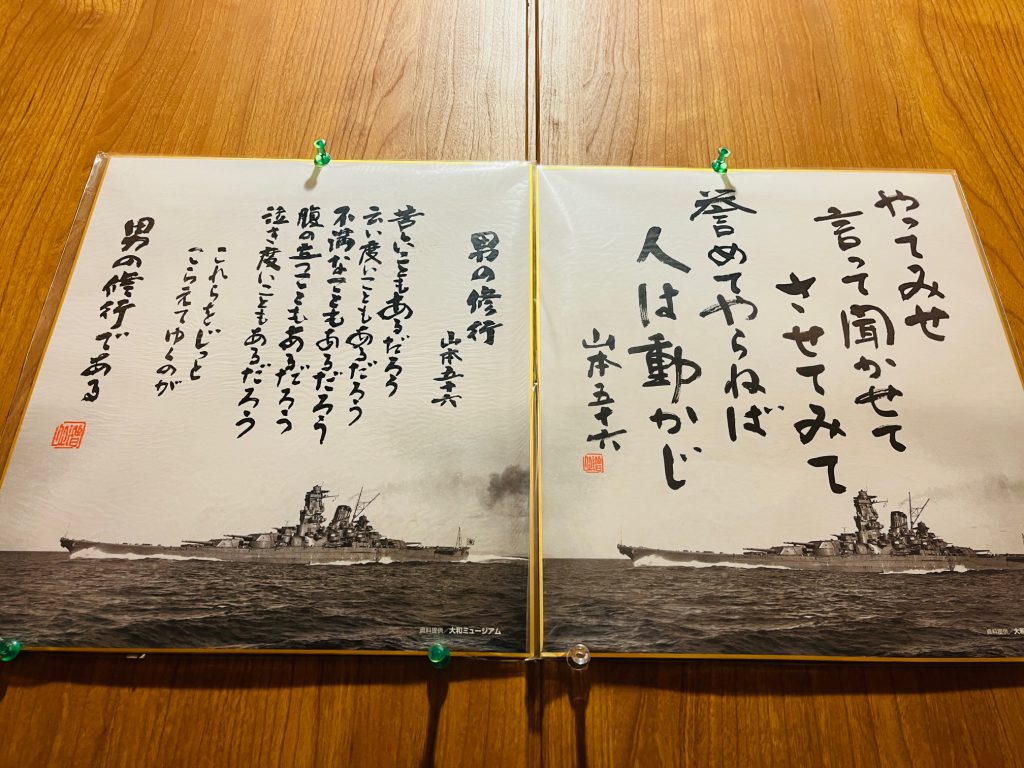 やってみせ
言って聞かせて
させてみて
誉めてやらねば
人は動かじ
山本五十六
資料提供／大和
男の修行
山本五十六
苦しいこともあるだろう
云い度いこともあるだろう
不満なこともあるだろう
腹の立つこともあるだろう
泣き度いこともあるだろう
これらをじっと
こらえてゆくのが
男の修行である
資料提供／大和ミュージアム